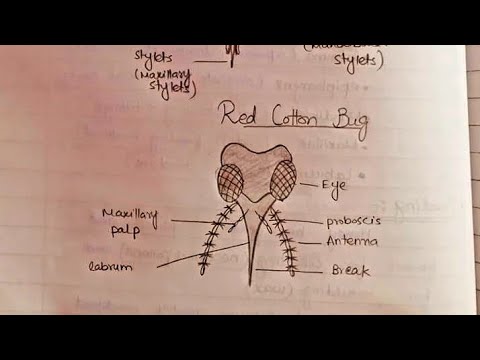 stylets
(Maxillary
stylets)
stylets)
Red Cotton Bug
Eye
Maxillary
palp
proboscis
Antenna
labrum
Break